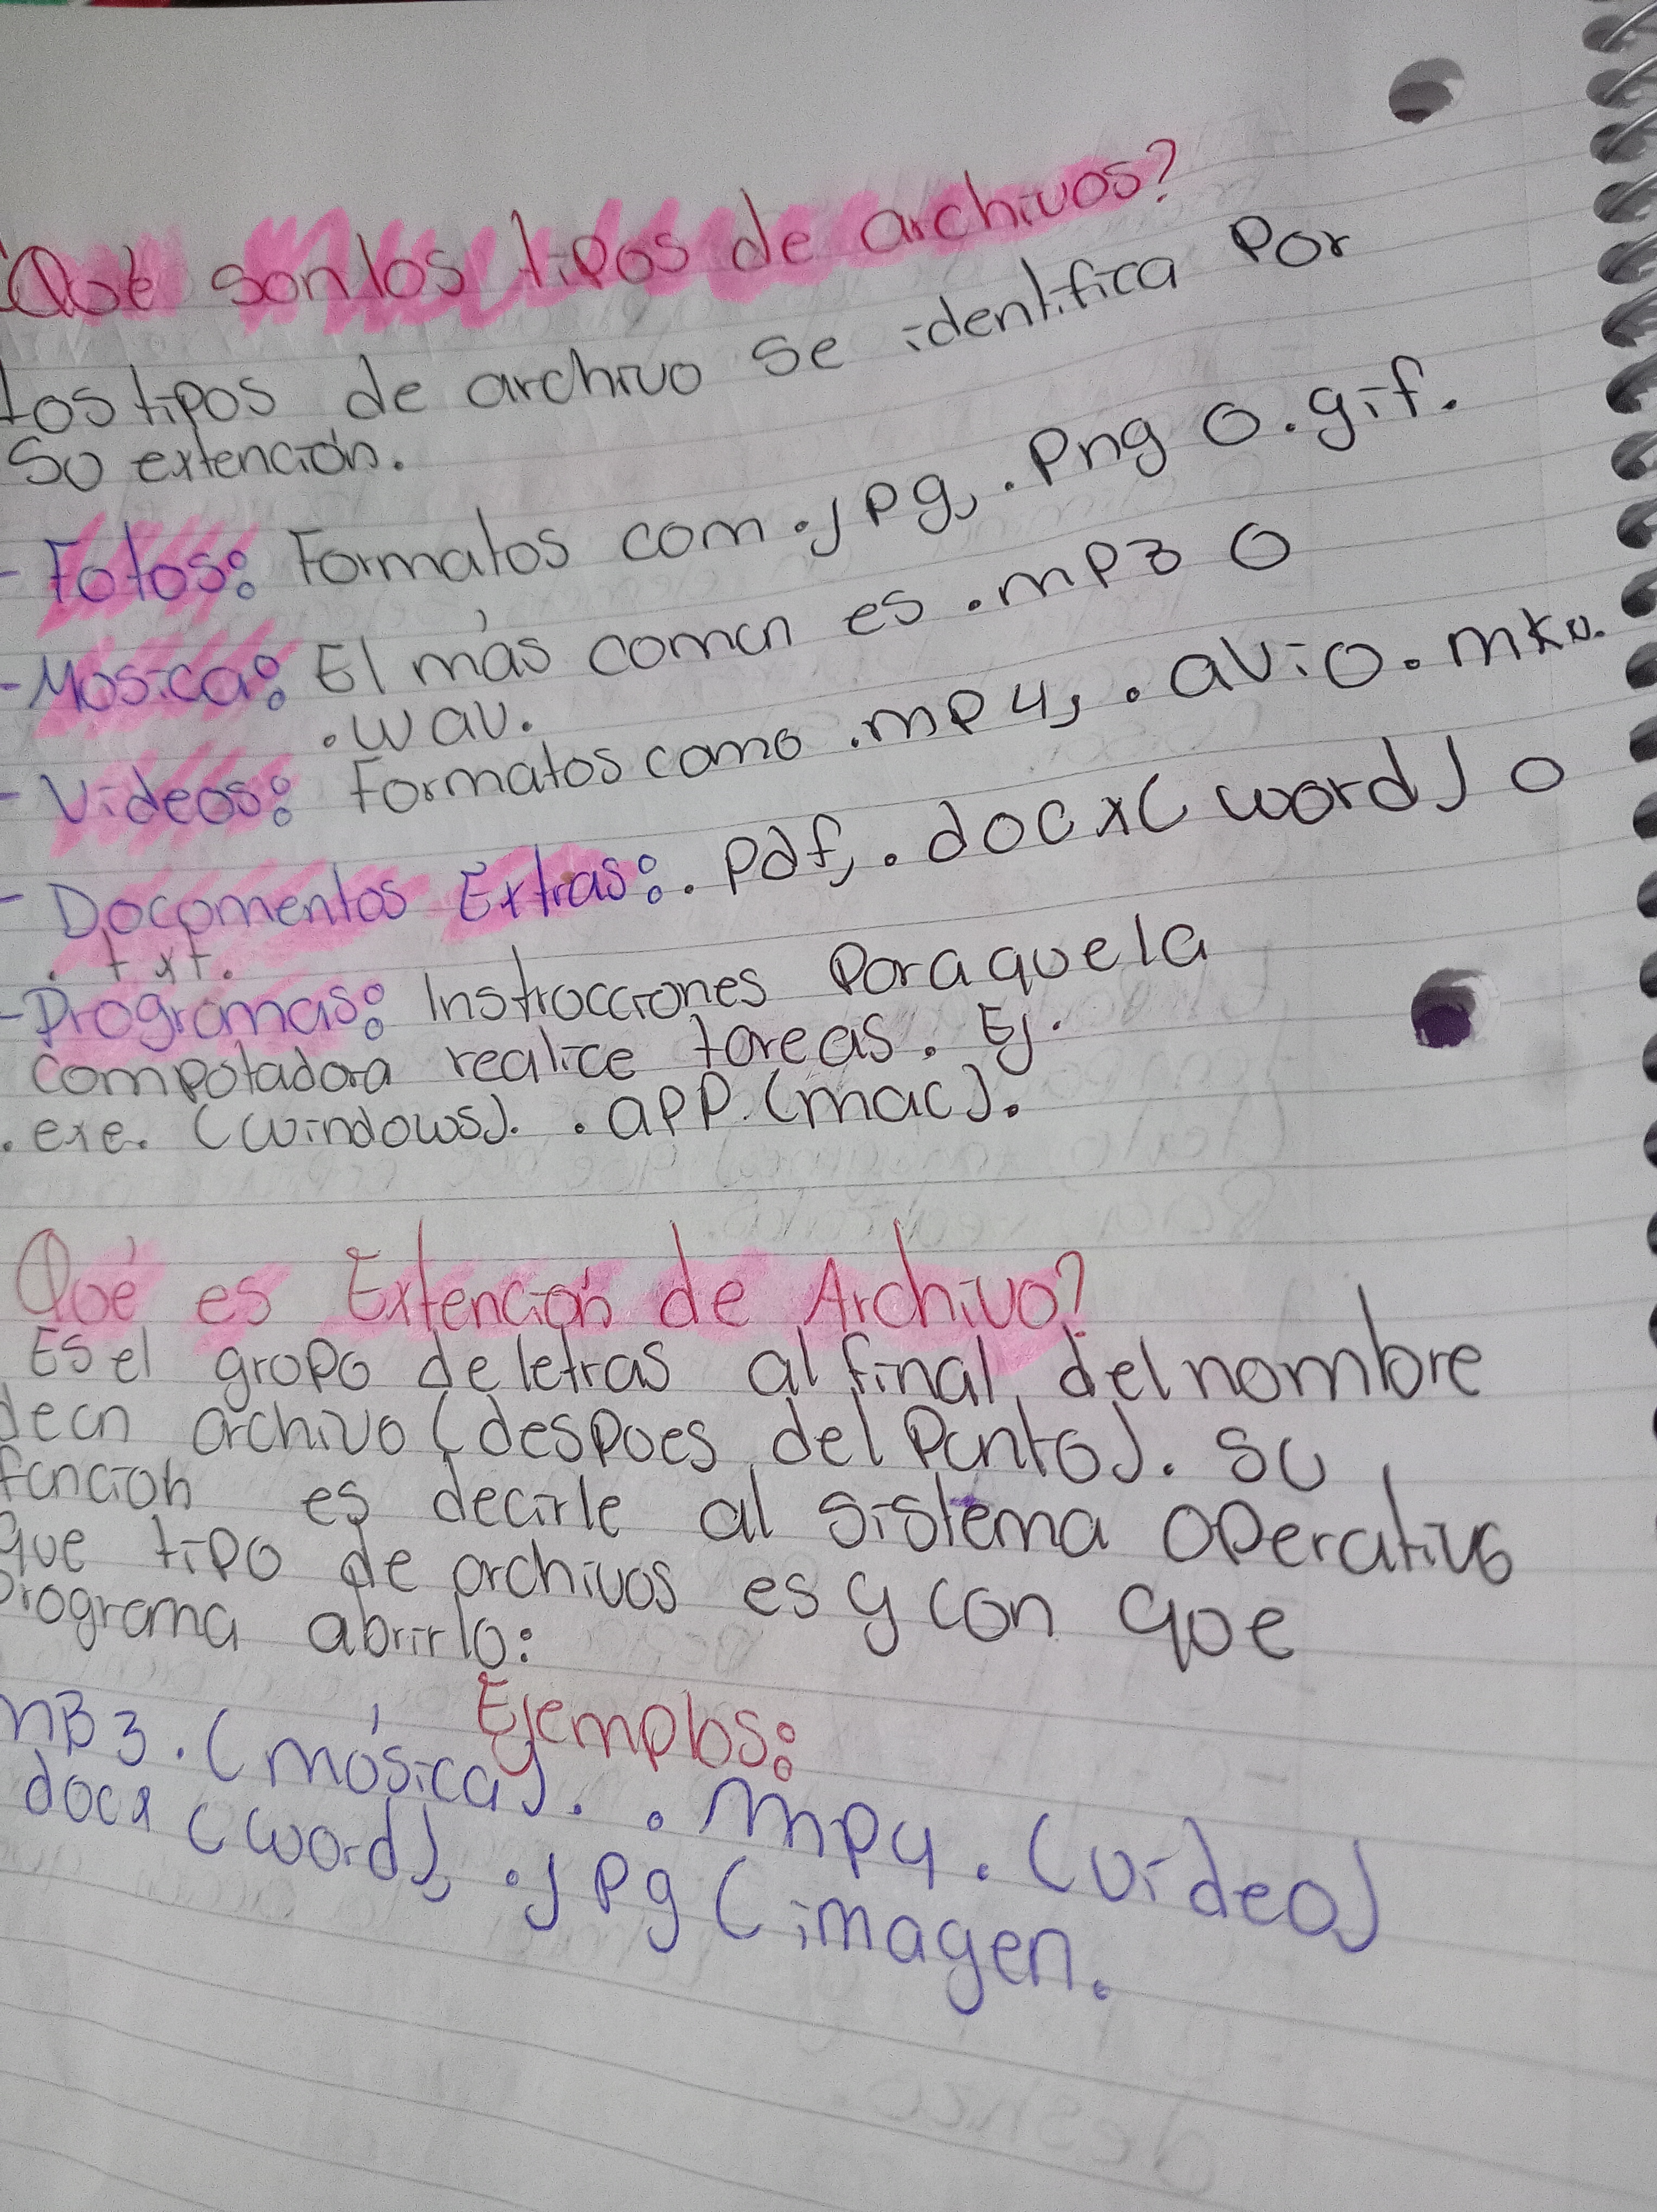 ¿Qué son los tipos de archivos?
Los tipos de archivo se identifica por
su extención.
- Fotos: Formatos com .jpg, .png o .gif.
- Música: El más comun es .mp3 o
.wav.
- Videos: Formatos como .mp4, .avi o .mkv.
- Documentos Extras: .pdf, .docx (word) o
.txt.
- Programas: Instrucciones para que la
computadora realice tareas. Ej.
.exe. (windows). .app. (mac).
Qué es Extención de Archivo?
Es el grupo de letras al final del nombre
de un archivo (despues del punto). Su
función es decirle al sistema operativo
que tipo de archivos es y con que
programa abrirlo:
Ejemplos:
mB3. (música). .mp4. (video)
docx (word), .jpg (imagen.